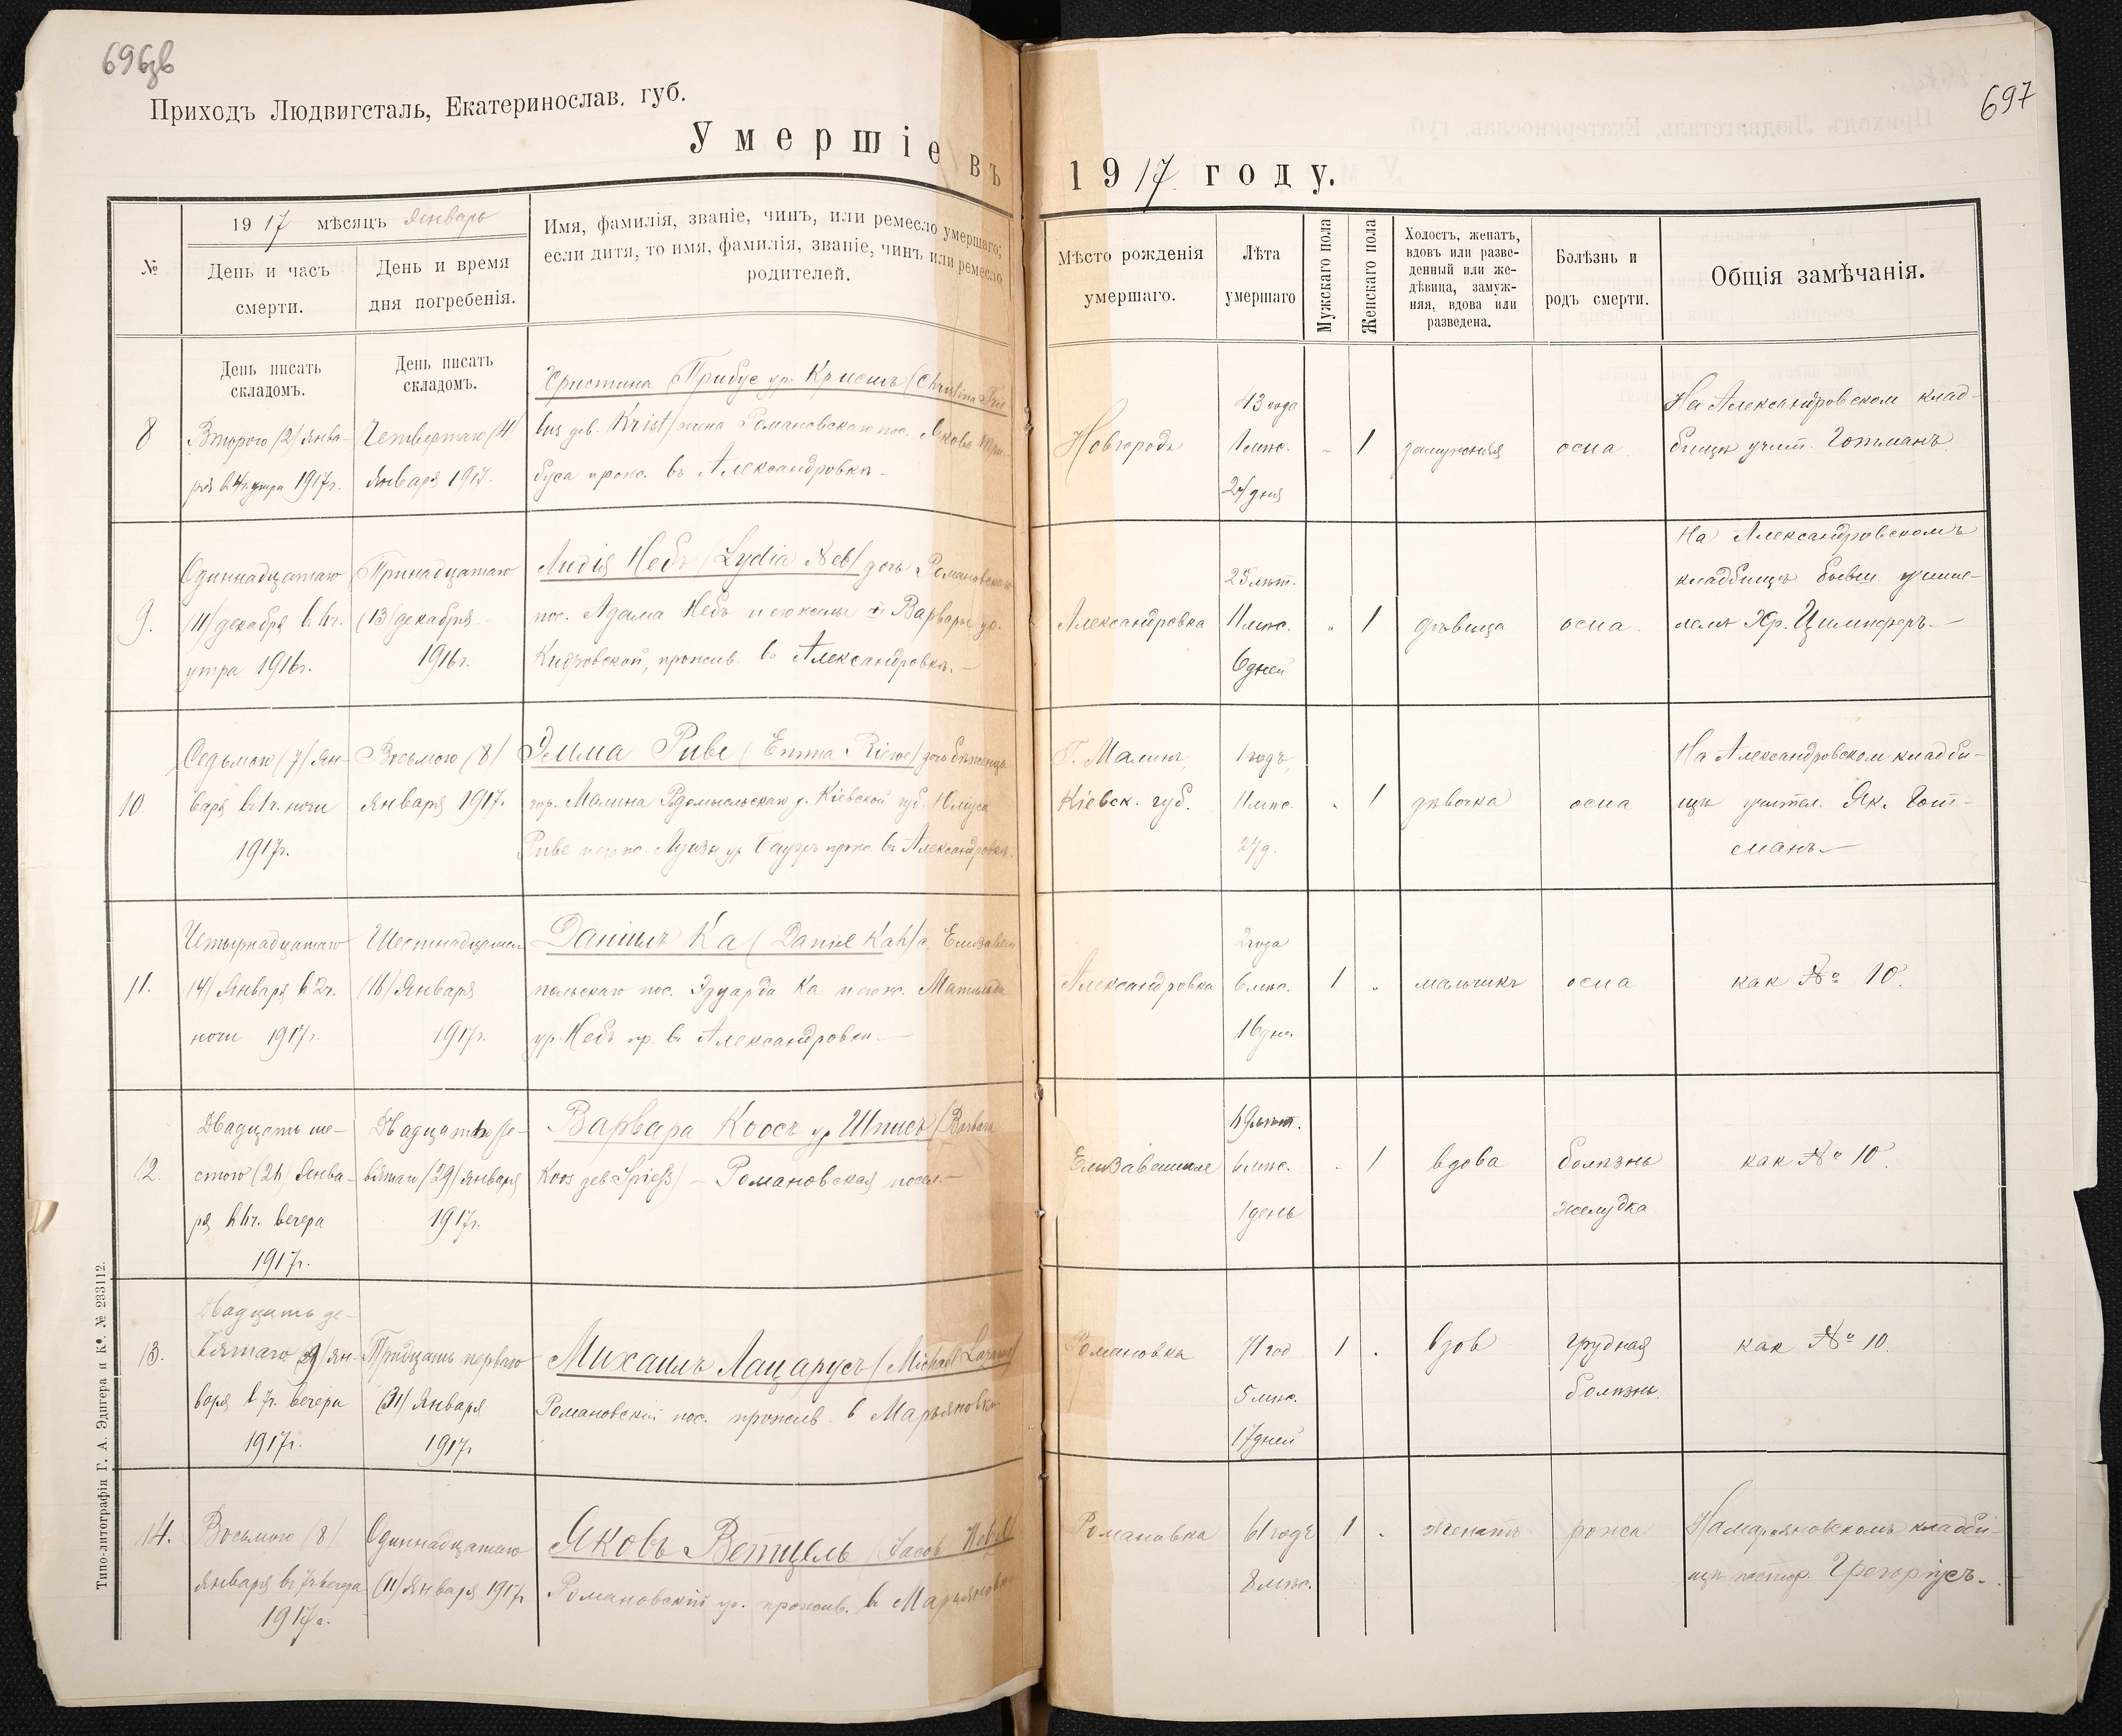 696зв
697
Приходъ Людвигсталь, Екатеринослав. губ.
Умершіе въ 1917 году.
№
1917 мѣсяцъ Январь
День и часъ
смерти.
День и время
дня погребенія.
Имя, фамилія, званіе, чинъ, или ремесло умершаго;
если дитя, то имя, фамилія, званіе, чинъ или ремесло
родителей.
Мѣсто рожденія
умершаго.
Лѣта
умершаго
Мужскаго пола
Женскаго пола
Холостъ, женатъ,
вдовъ или разве-
денный или же-
дѣвица, замуж-
няя, вдова или
разведена.
Болѣзнь и
родъ смерти.
Общія замѣчанія.
День писать
складомъ.
День писать
складомъ.
8
Второго (2) Янва-
ря в 4 ч. утра 1917г.
Четвертаго (4)
Января 1917.
Христина Трибус ур. Кристъ (Christina Trie
bus geb. Krist) жена Романовского пос. Якова Три-
буса прож. въ Александровкѣ -
Новгородъ
43 года
1 мѣс.
24 дня
-
1
замужняя
оспа
На Александровском клад-
бищѣ учит. Готманъ
9.
Одиннадцатаго
(11) декабря в 4ч.
утра 1916г.
Тринадцатаго
(13) декабря
1916г.
Лидія Небъ (Lydia Neb) дочь Романовского
пос. Адама Небъ и его жены Варвары ур.
Кидровской, прожив. в Александровкѣ. —
Александровка
25 лѣт.
11 мѣс.
6 дней
"
1
дѣвица
оспа.
На Александровскомъ
кладбищѣ бывш. учите-
лемъ Хр. Цимпферъ —
10.
Седьмого (7) Ян-
варя в 1ч. ночи
1917г.
Восьмого (8)
Января 1917.
Эмма Риве (Emma Riewe) дочь бѣженца
гор. Малина Радомысльскаго у. Кіевской губ. Юліуса
Риве и его ж. Луизы ур. Бауэръ прож. въ Александровкѣ.
Г. Малинъ,
Кіевск. губ.
1 годъ,
11 мѣс.
27 д.
"
1
дѣвочка
оспа
На Александровском кладби-
щѣ учител. Як. Гот-
сманъ —
11.
Четырнадцатаго
14) Января в 2ч.
ночи 1917г.
Шестнадцатаго
(16) Января
1917г.
Даніилъ Ка (Daniel Kah) с. Елизавет
польскаго пос. Эдуарда Ка и его ж. Матильда
ур. Небъ пр. въ Александровкѣ —
Александровка
2 года
6 мѣс.
16 дн.
1
"
мальчикъ
оспа
как № 10.
12.
Двадцать ше-
стого (26) Янва-
ря в 4ч. вечера
1917г.
Двадцать де-
вятаго (29) января
1917г.
Варвара Коосъ ур. Шписъ (Barbara
Koos geb. Spieß) - Романовская посел. —
Елизаветполе
49 лѣт.
6 мѣс.
1 день
-
1
вдова
болѣзнь
желудка
как № 10.
13.
Двадцать де-
вятаго 29) Ян-
варя в 7ч. вечера
1917г.
Тридцать перваго
(31) Января
1917г
Михаилъ Лацарусъ (Michael Lazarus)
Романовскій пос. прожив. в Марьяновкѣ
Романовка
71 год
5 мѣс.
17 дней
1
.
вдов
грудная
болѣзнь.
как № 10.
14.
Восьмого (8)
Января въ 7ч. вечера
1917г.
Одиннадцатаго
(11) Января 1917г
Яковъ Ветцель (Jacob
Романовскій прожив. в Марьяновкѣ
Романовка
61 годъ
8 мѣс.
1
.
женатъ
рожа
На марьяновскомъ кладби-
щѣ пастор. Грегоріусъ. -
Типо-литографія Г. А. Эдигера и Ко. № 233112.